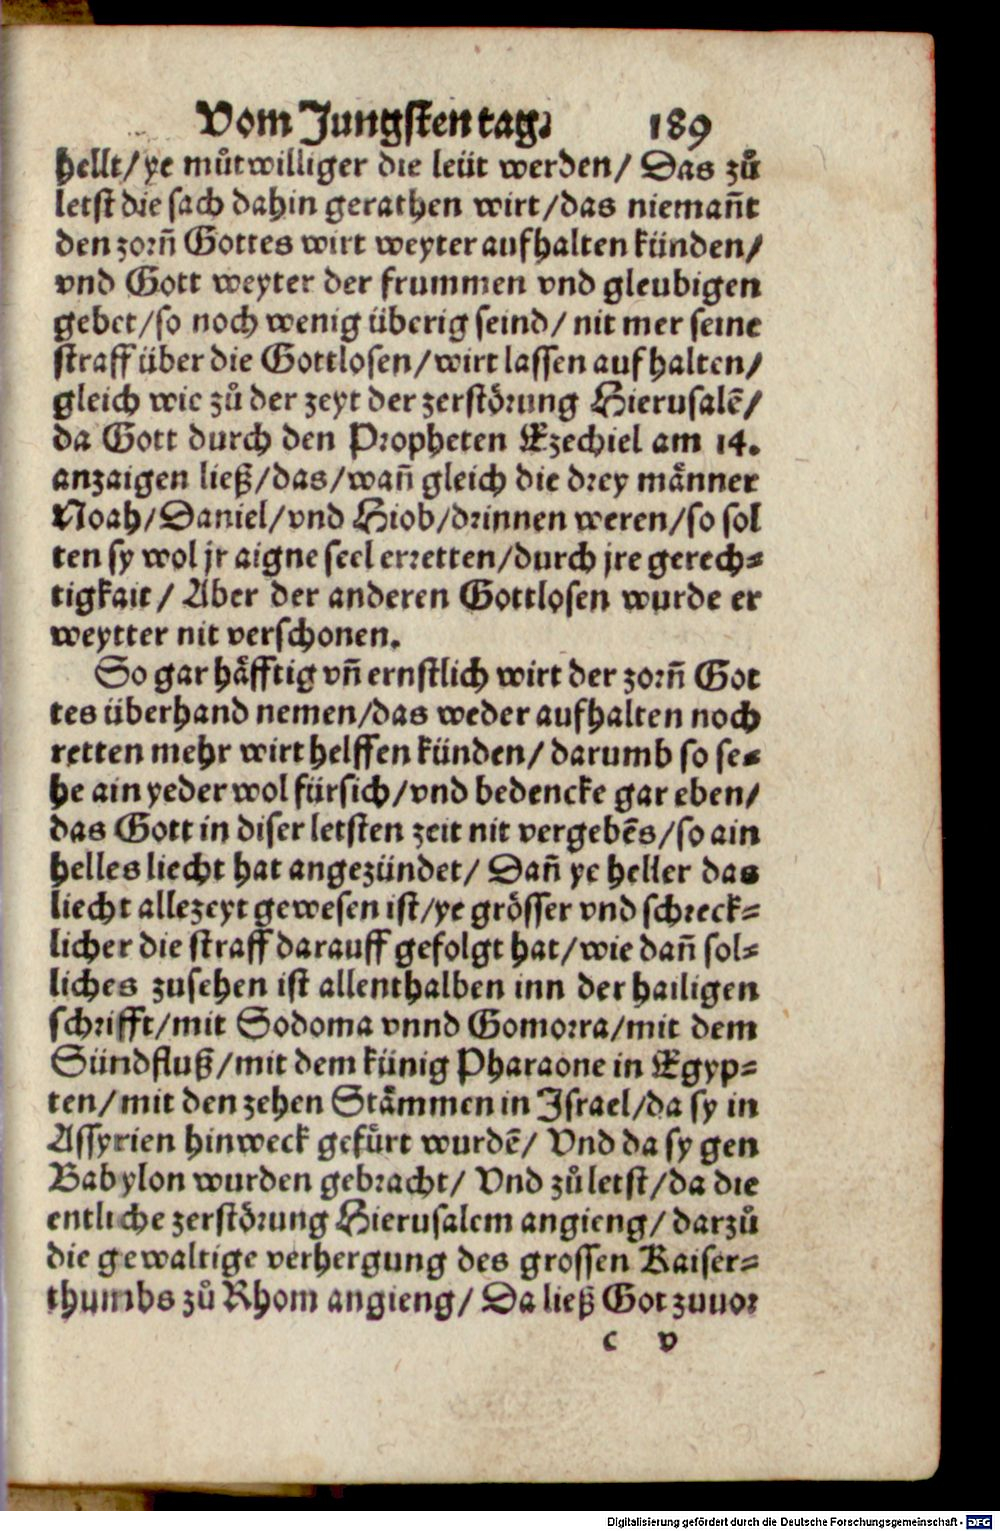 Vom Jungsten tag. 189
hellt/ye můtwilliger die leüt werden/ Das zů
letst die sach dahin gerathen wirt/das niemañt
den zorñ Gottes wirt weyter aufhalten künden/
vnd Gott weyter der frummen vnd gleubigen
gebet/so noch wenig überig seind/ nit mer seine
straff über die Gottlosen/wirt lassen aufhalten/
gleich wie zů der zeyt der zerstörung Hierusalē/
da Gott durch den Propheten Ezechiel am 14.
anzaigen ließ/das/wañ gleich die drey männer
Noah/Daniel/vnd Hiob/drinnen weren/so sol
ten sy wol jr aigne seel erretten/durch jre gerech-
tigkait/ Aber der anderen Gottlosen wurde er
weytter nit verschonen.
So gar häfftig vñ ernstlich wirt der zorñ Got
tes überhand nemen/das weder aufhalten noch
retten mehr wirt helffen künden/ darumb so se-
he ain yeder wol fürsich/vnd bedencke gar eben/
das Gott in diser letsten zeit nit vergebēs/so ain
helles liecht hat angezündet/ Dañ ye heller das
liecht allezeyt gewesen ist/ye grösser vnd schreck-
licher die straff darauff gefolgt hat/wie dañ sol-
liches zusehen ist allenthalben inn der hailigen
schrifft/mit Sodoma vnnd Gomorra/mit dem
Sündfluß/mit dem künig Pharaone in Egyp-
ten/mit den zehen Stämmen in Israel/da sy in
Assyrien hinweck gefürt wurdē/ Vnd da sy gen
Babylon wurden gebracht/ Vnd zů letst/da die
entliche zerstörung Hierusalem angieng/ darzů
die gewaltige verhergung des grossen Kaiser-
thumbs zů Rhom angieng/ Da ließ Got zuuor
c v
Digitalisierung gefördert durch die Deutsche Forschungsgemeinschaft - DFG